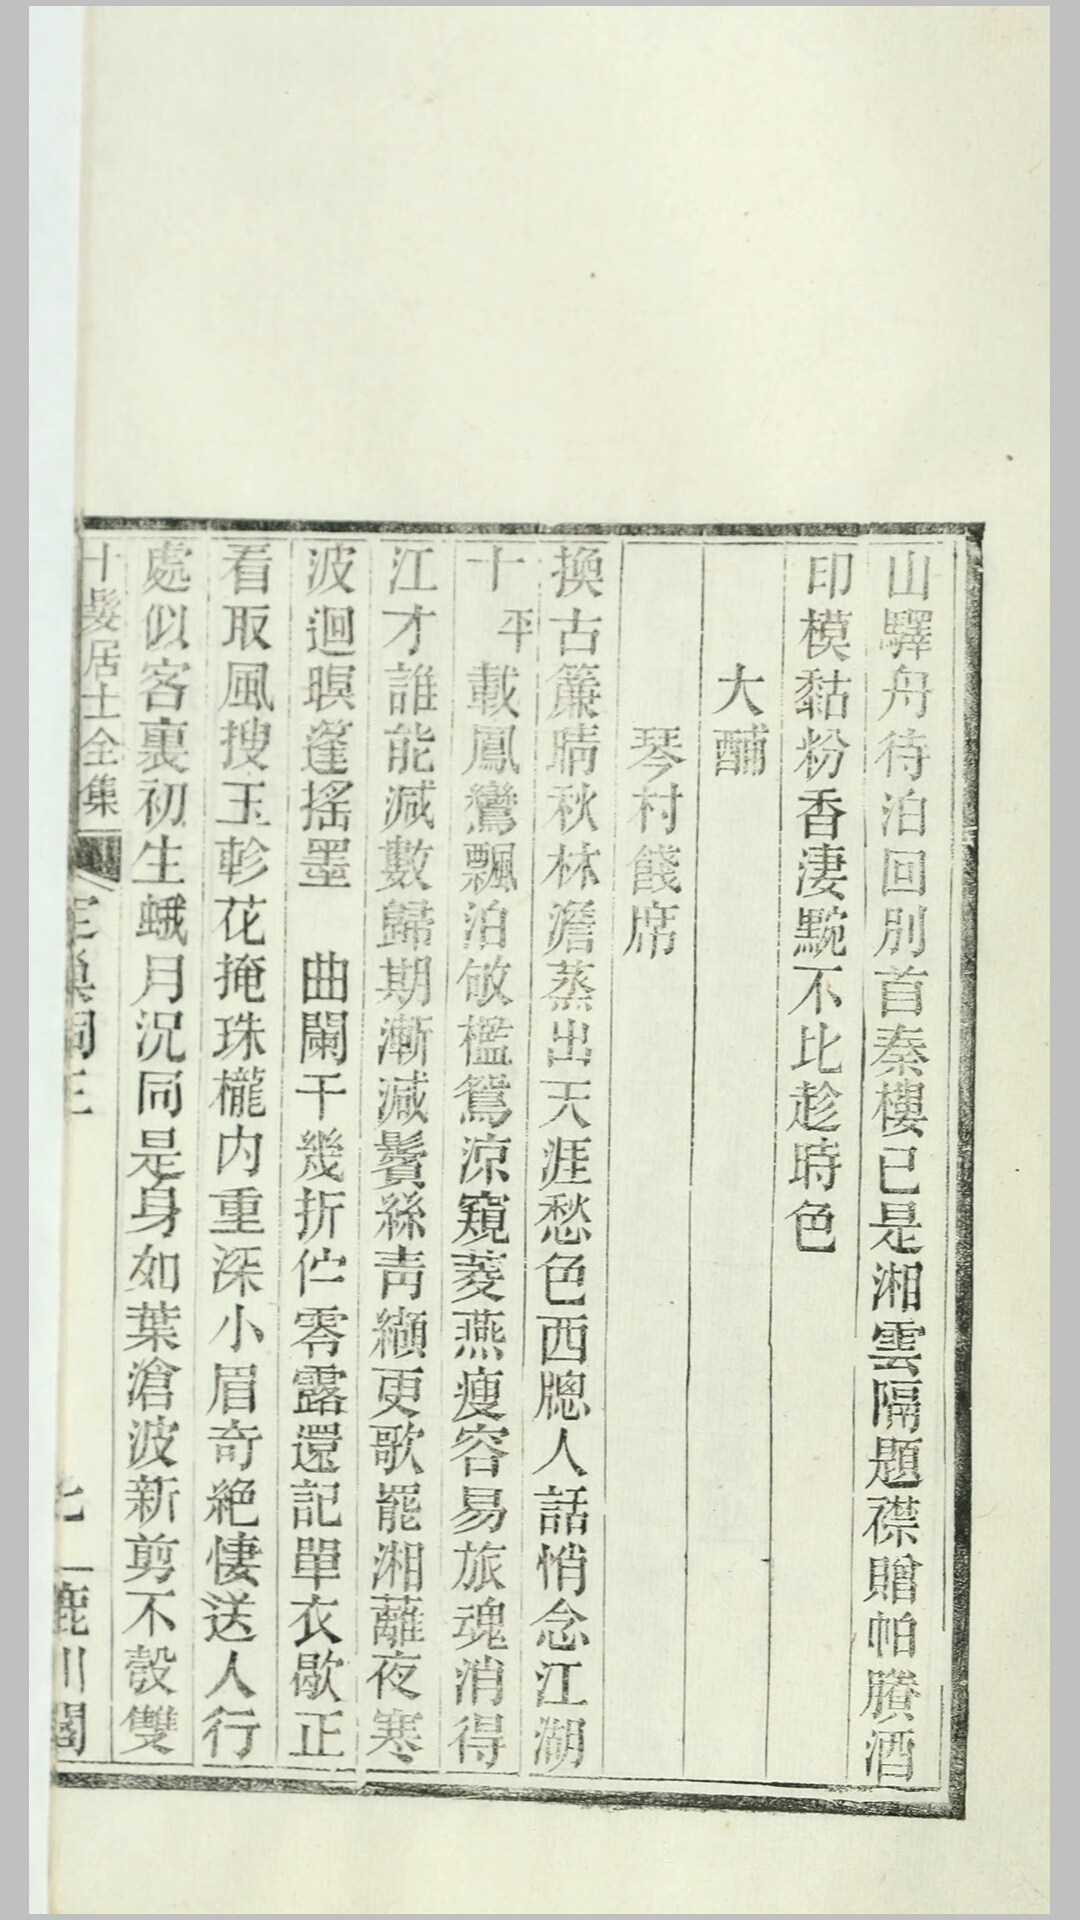 山驛舟待泊回別首秦樓已是湘雲隔題襟贈帕賸酒
印模黏粉香淒黦不比趁時色
大酺
琴村餞席
換古簾晴秋林澹蒸出天涯愁色西牕人話悄念江湖
十平載鳳鸞飄泊敂檻鴛涼窺菱燕瘦容易旅魂消得
江才誰能減數歸期漸減鬢絲靑纈更歌罷湘蘺夜寒
波迴暝篷搖墨　曲闌干幾折伫零露還記單衣歇正
看取風搜玉軫花掩珠櫳內重深小眉奇絕悽送人行
處似客裏初生蛾月況同是身如葉滄波新剪不彀雙
十髮居士全集　定巢詞三　七　鹿川閣